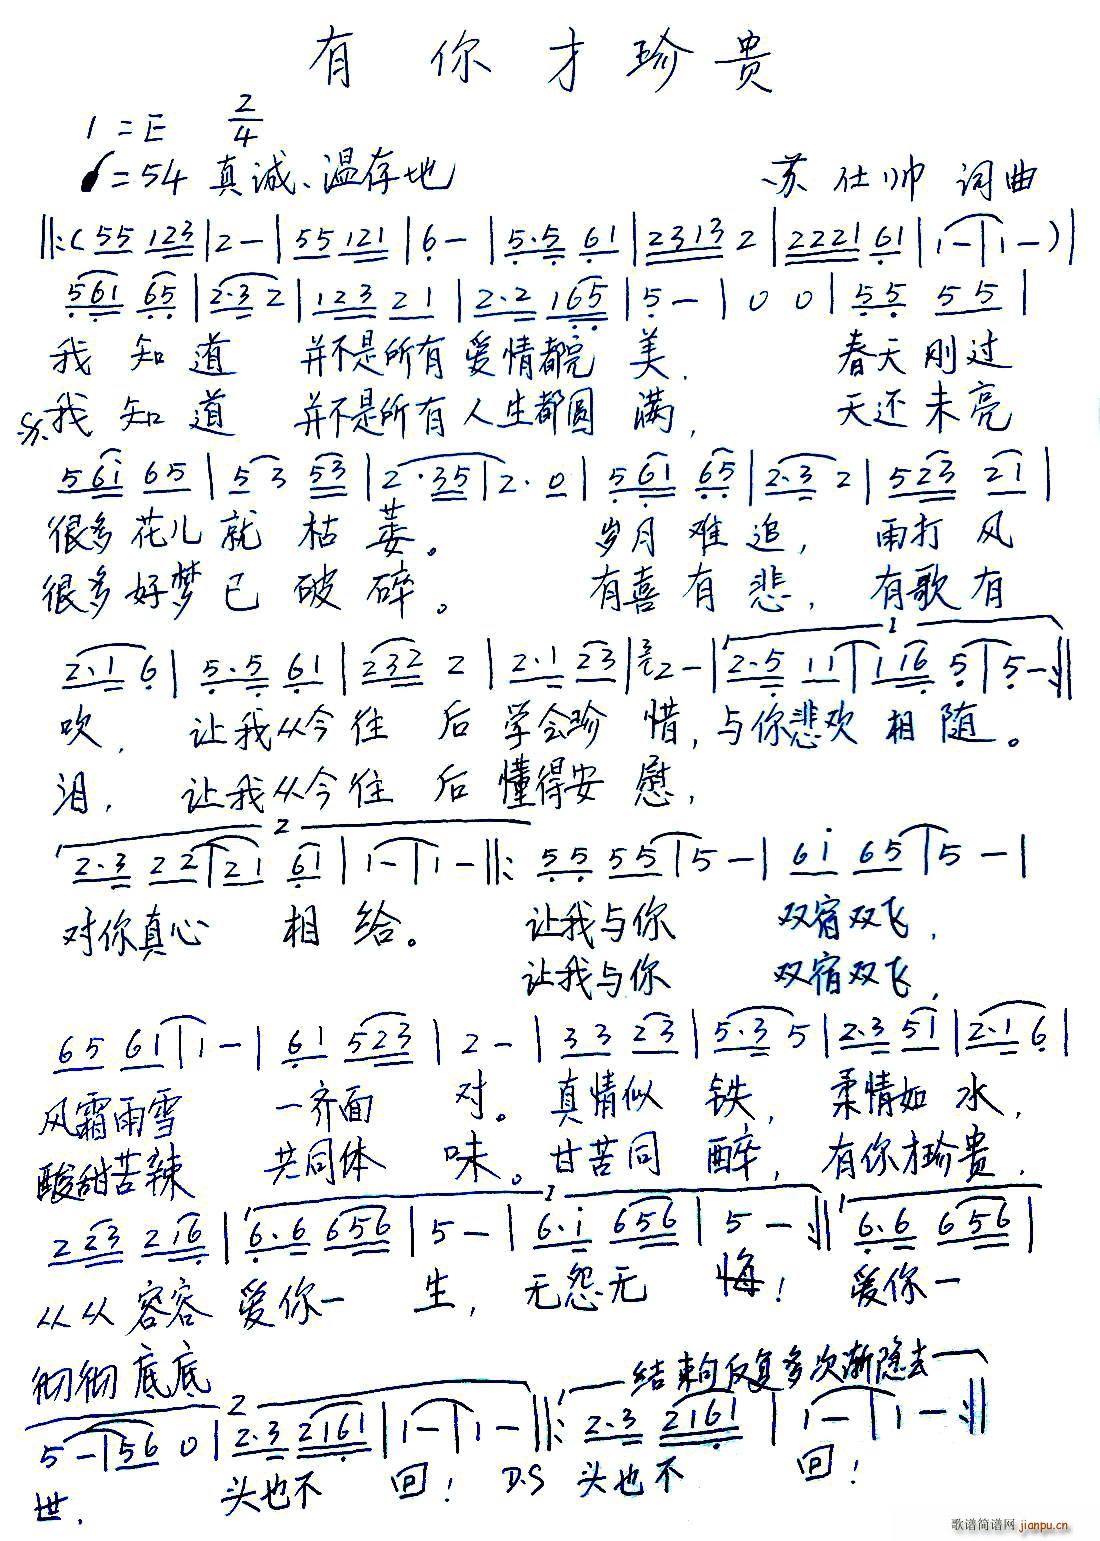 有你才珍贵
1=E 2/4
=54 真诚、温存地 苏仕帅 词曲
‖:( 55 123 | 2 - | 55 121 | 6 - | 5·5 61 | 2313 2 | 2221 61 | 1 - | 1 - ) |
561 65 | 2·3 2 | 123 21 | 2·2 165 | 5 - | 0 0 | 55 55 |
我知道 并不是所有爱情都完美. 春天刚过
我知道 并不是所有人生都圆满, 天还未亮
561 65 | 53 53 | 2·35 | 2·0 | 561 65 | 2·3 2 | 523 21 |
很多花儿就枯萎。 岁月难追, 雨打风
很多好梦已破碎。 有喜有悲, 有歌有
1
2·1 6 | 5·5 61 | 232 2 | 2·1 23 | 3 2 - | 2·5 11 | 116 5 | 5 - :‖
吹, 让我从今往后学会珍惜, 与你悲欢相随。
泪, 让我从今往后懂得安慰,
2
2·3 22 | 21 61 | 1 - | 1 - ‖: 55 55 | 5 - | 61 65 | 5 - |
对你真心相给。 让我与你 双宿双飞,
让我与你 双宿双飞,
65 61 | 1 - | 61 523 | 2 - | 33 23 | 5·3 5 | 2·3 51 | 2·1 6 |
风霜雨雪 一齐面对。真情似铁, 柔情如水,
酸甜苦辣 共同体味。甘苦同醉, 有你才珍贵.
1
223 216 | 6·6 656 | 5 - | 6·i 656 | 5 - :‖ 6·6 656 |
从从容容 爱你一生, 无怨无悔! 爱你一
彻彻底底
结束句反复多次渐隐去
2
5 - | 56 0 | 2·3 2161 | 1 - | 1 - ‖: 2·3 2161 | 1 - | 1 - :‖
世. 头也不回! D.S 头也不回!
歌谱简谱网 jianpu.cn